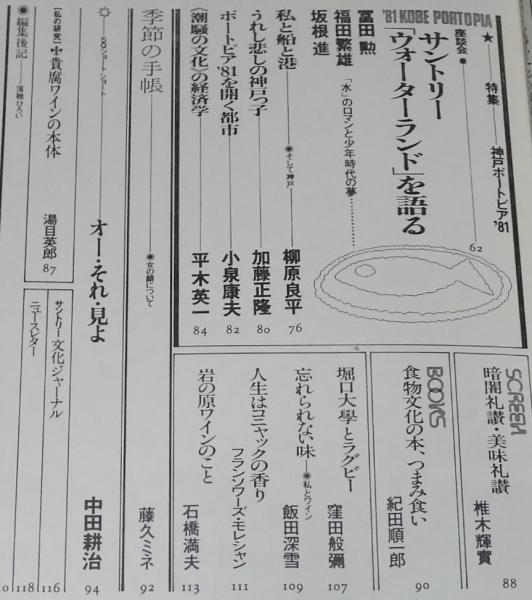 '81 KOBE PORTOPIA
★
特集
神戸ポートピア'81
座談会◉
サントリー
「ウォーターランド」を語る
62
冨田 勲
福田繁雄
坂根 進
「水」のロマンと少年時代の夢
私と船と港
◉そして神戸
柳原良平
76
うれし悲しの神戸っ子
加藤正隆
80
ポートピア'81を開く都市
小泉康夫
82
〈潮騒の文化〉の経済学
平木英一
84
SCREEN
暗闇礼讃・美味礼讃
椎木輝實
88
BOOKS
食物文化の本、つまみ食い
紀田順一郎
90
堀口大學とラグビー
窪田般彌
107
忘れられない味
◉私とワイン
飯田深雪
109
人生はコニャックの香り
フランソワーズ・モレシャン
111
岩の原ワインのこと
石橋満夫
113
季節の手帳
◉女の鎖について
藤久ミネ
92
ショートショート
オー・それ・見よ
中田耕治
94
［私の研究］・中・貴腐ワインの本体
湯目英郎
87
サントリー文化ジャーナル
116
ニュースレター
118
◉編集後記
落穂ひろい